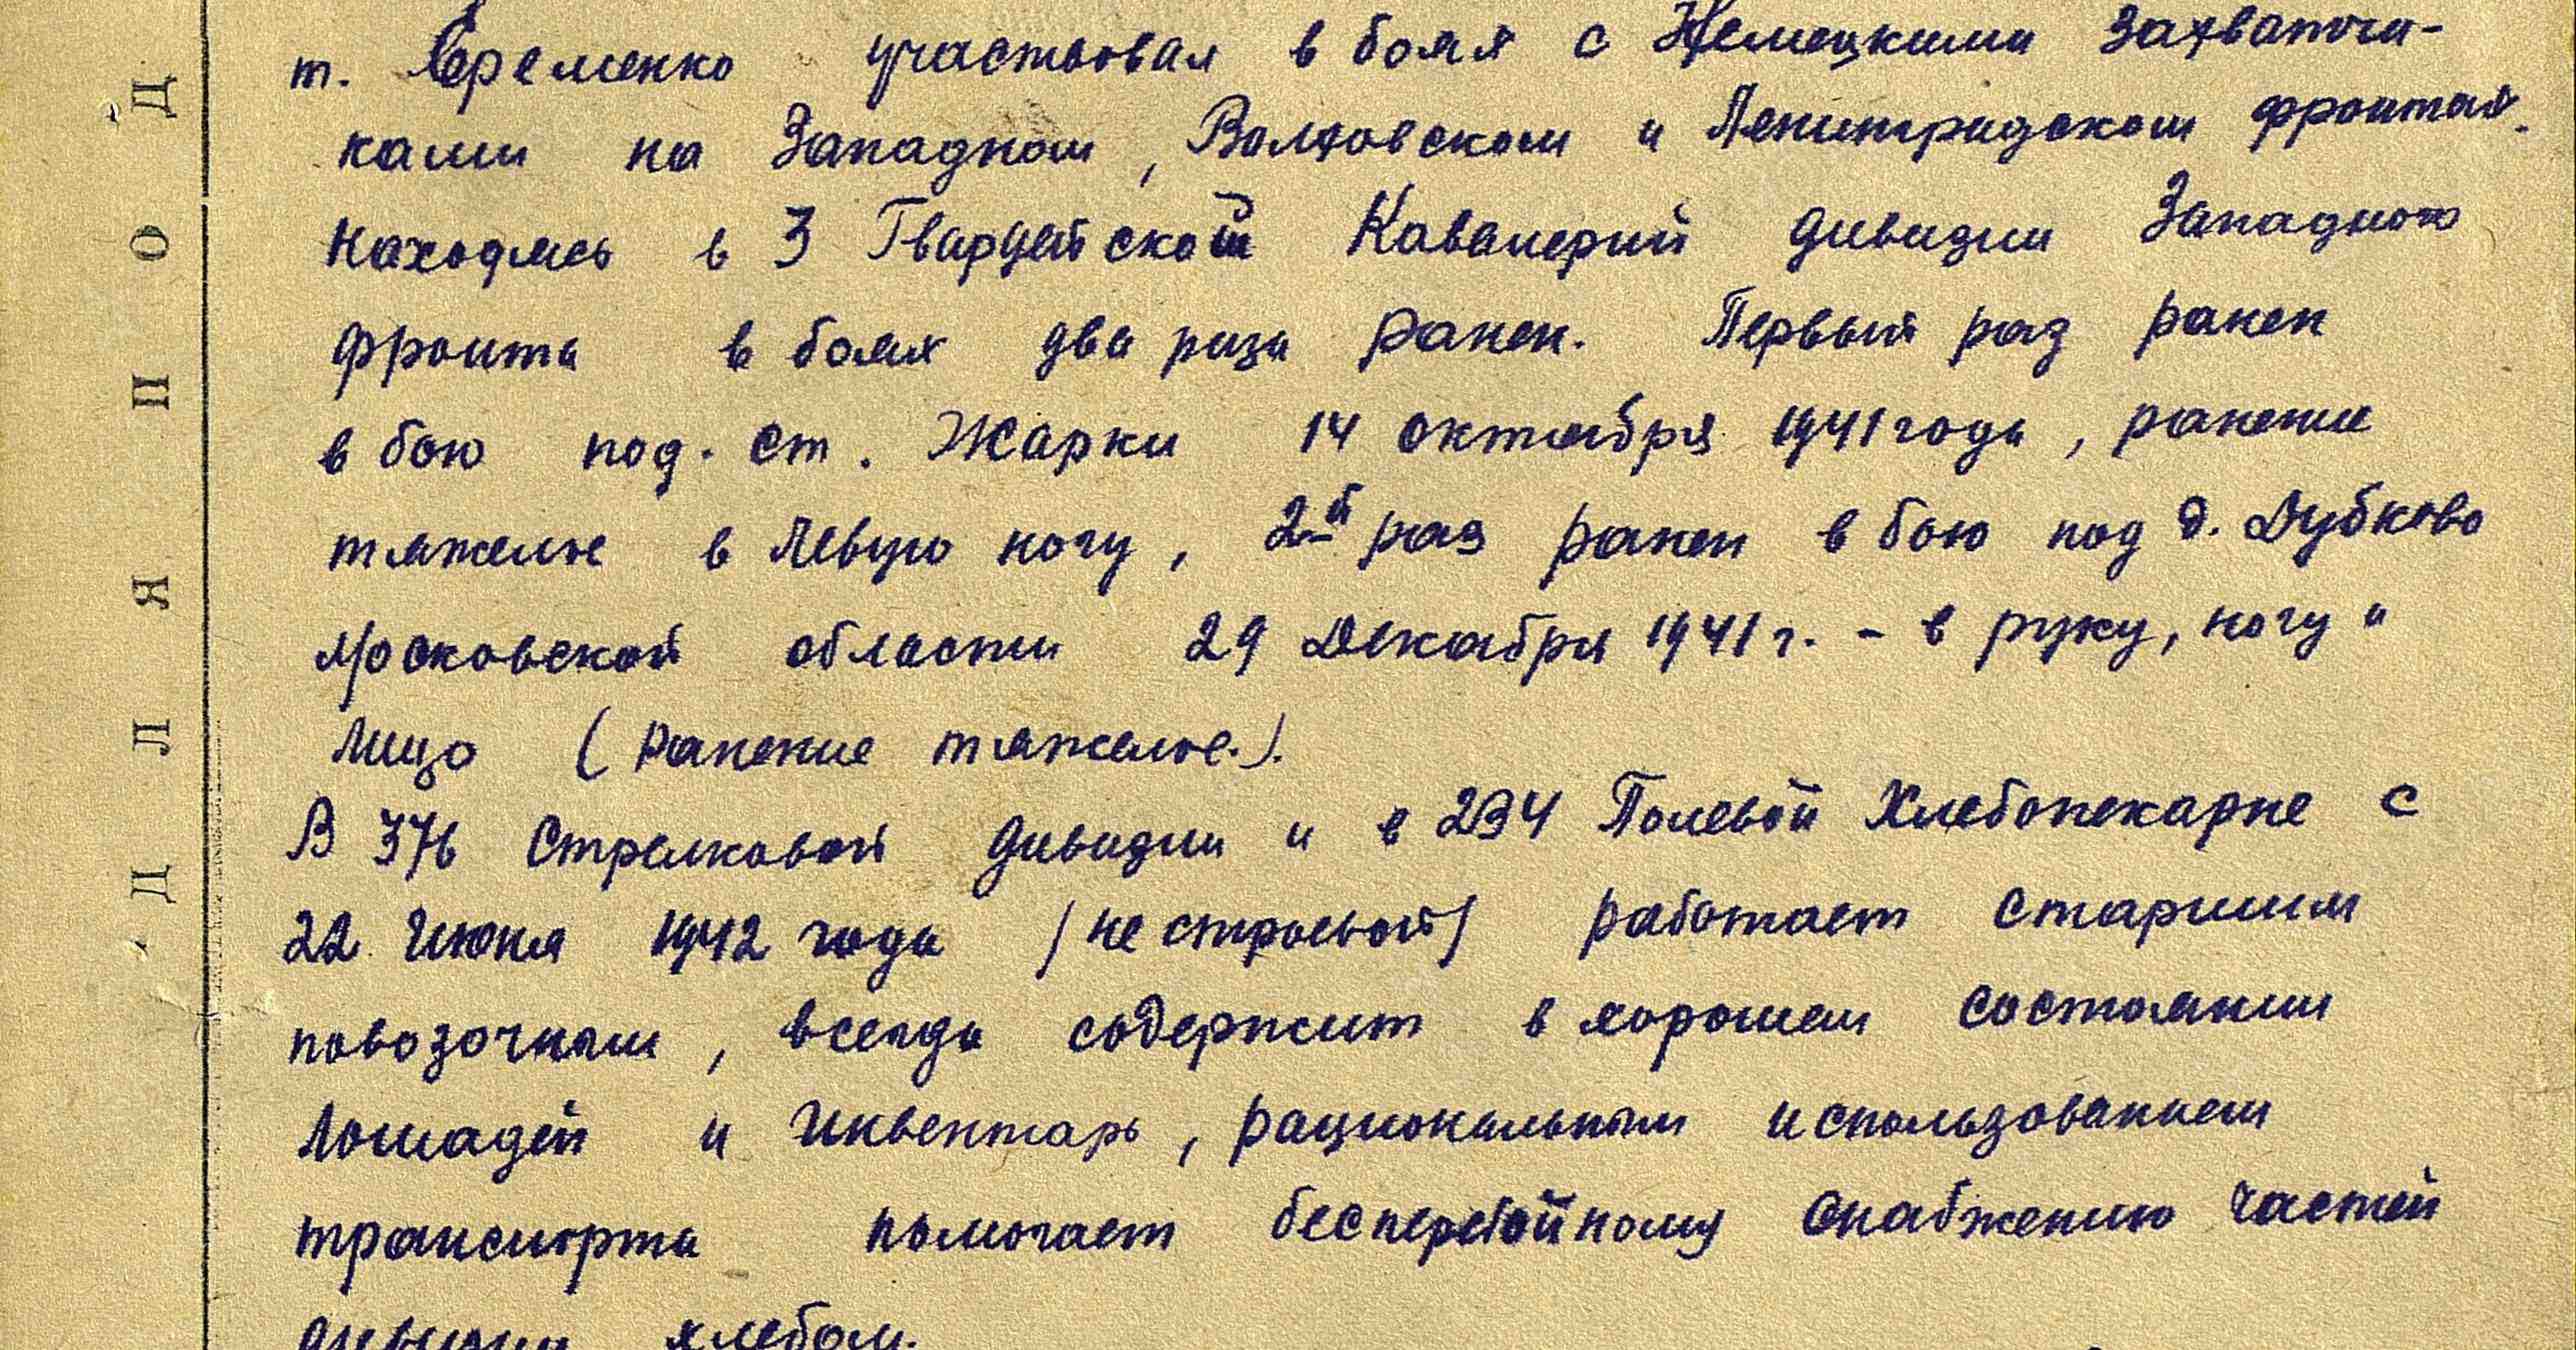 т. Еременко участвовал в боях с Немецкими захватчи-
ками на Западном, Волховском и Ленинградском фронтах.
Находясь в 3 Гвардейской Кавалерий дивизии Западного
фронта в боях два раза ранен. Первый раз ранен
в бою под. ст. Жарки 14 октября 1941 года, ранение
тяжелое в левую ногу, 2-й раз ранен в бою под д. Дубково
Московской области 29 Декабря 1941 г. - в руку, ногу и
лицо (ранение тяжелое.).
В 376 Стрелковой дивизии и в 234 Полевой Хлебопекарне с
22 Июня 1942 года /не строевой/ работает старшим
повозочным, всегда содержит в хорошем состоянии
лошадей и инвентарь, рациональным использованием
транспорта помогает бесперебойному снабжению частей
дивизии хлебом.
Д Л Я П О Д